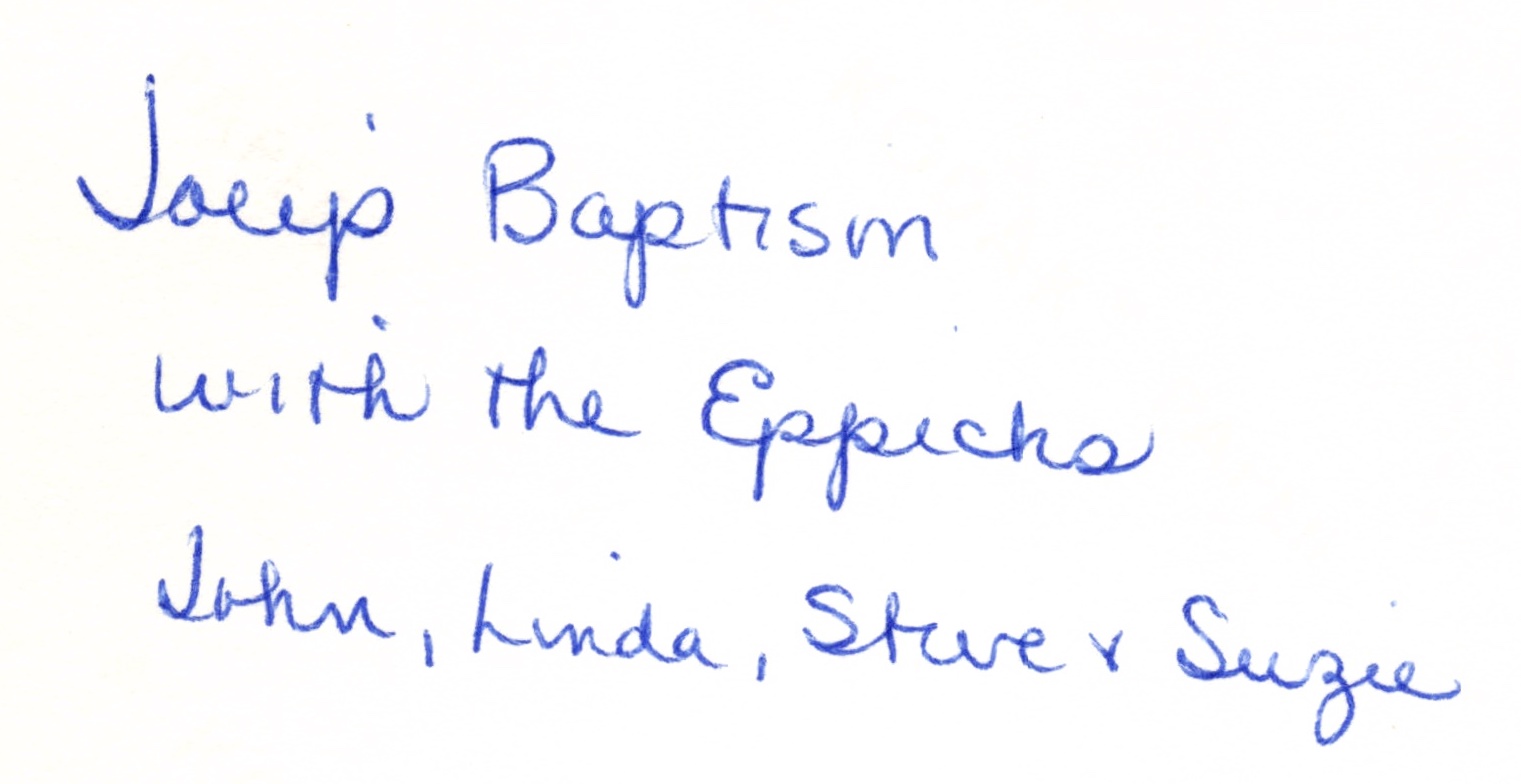 Joey's Baptism
with the Eppicks
John, Linda, Steve & Suzie